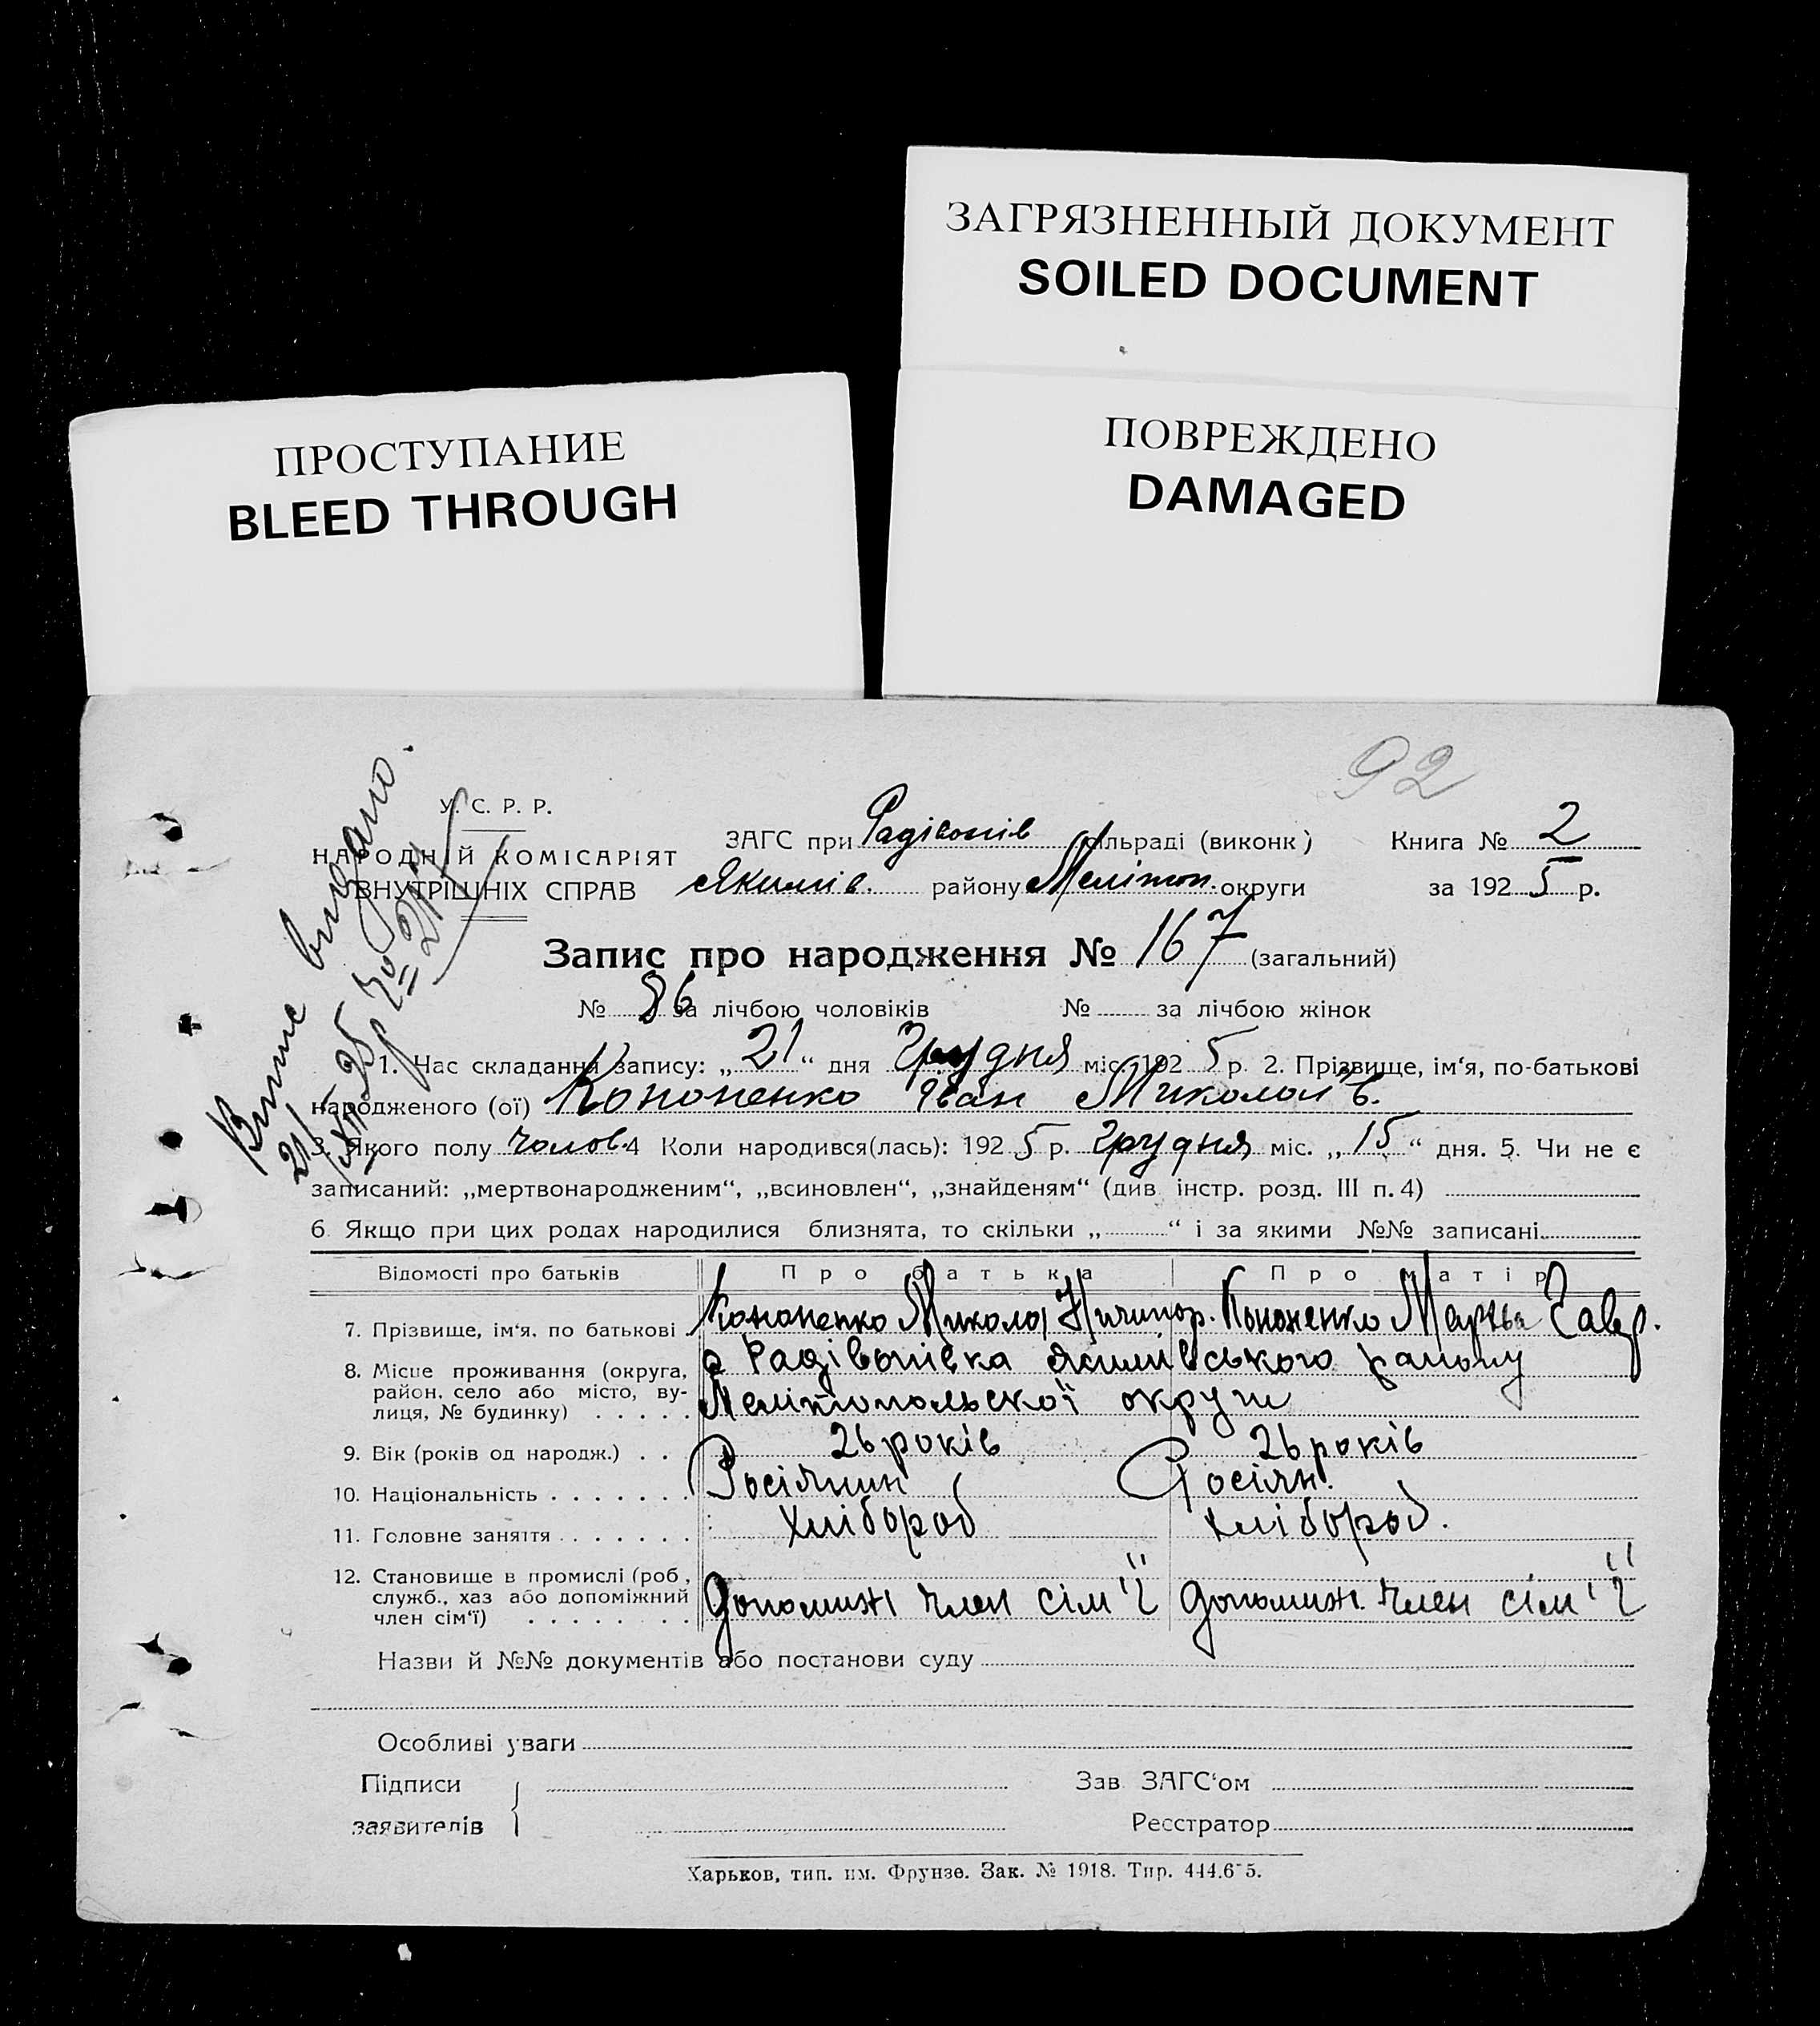 ЗАГРЯЗНЕННЫЙ ДОКУМЕНТ
SOILED DOCUMENT
ПРОСТУПАНИЕ
BLEED THROUGH
ПОВРЕЖДЕНО
DAMAGED
92
У. С. Р. Р.
НАРОДНІЙ КОМІСАРІЯТ
ВНУТРІШНІХ СПРАВ
Випис видано.
21/XII 25 р. № 21
ЗАГС при Радівонів сільраді (виконк) Книга № 2
Якимів. району Мелітоп. округи за 192 5 р.
Запис про народження № 167 (загальний)
№ 86 за лічбою чоловіків № за лічбою жінок
1. Час складання запису: „ 21 “ дня Грудня міс. 192 5 р. 2. Прізвище, ім‘я, по-батькові
народженого (ої) Кононенко Іван Миколаїв.
3. Якого полу чолов. 4 Коли народився(лась): 192 5 р. Грудня міс. „ 15 “ дня. 5. Чи не є
записаний: „мертвонародженим“, „всиновлен“, „знайденям“ (див. інстр. розд. III п. 4)
6 Якщо при цих родах народилися близнята, то скільки „ “ і за якими №№ записані
Відомості про батьків Про батька Про матір
7. Прізвище, ім‘я, по батькові Кононенко Микола Ничипор. Кононенко Марҍа Гавр.
8. Місце проживання (округа, с Радівонівка Якимівського району
район, село або місто, ву-
лиця, № будинку) Мелітопольської округи
9. Вік (років од народж.) 26 років 26 років
10. Національність Росіянин Росіян.
11. Головне заняття Хлібороб Хлібороб.
12. Становище в промислі (роб.,
служб., хаз або допоміжний Допомижн член сім'ї Допомижн. член сім'ї
член сім‘ї)
Назви й №№ документів або постанови суду
Особливі уваги
Підписи Зав ЗАГС‘ом
заявителів Реєстратор
Харьков, тип. им. Фрунзе. Зак. № 1918. Тир.